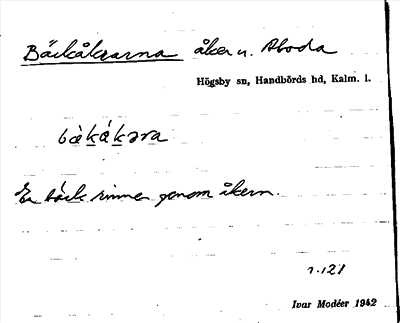 Bäckåkrarna åker u. Aboda
Högsby sn, Handbörds hd, Kalm. l.
bàkákəra
En bäck rinner genom åkern.
r. 121
Ivar Modéer 1942